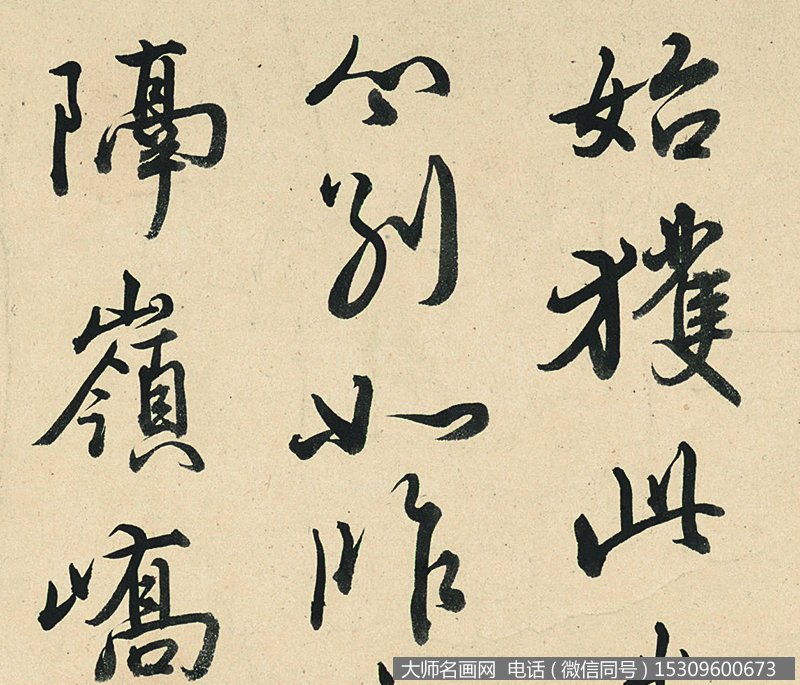 始獲此
公別如昨
隔嶺嶠
大师名画网 电话（微信同号）15309600673